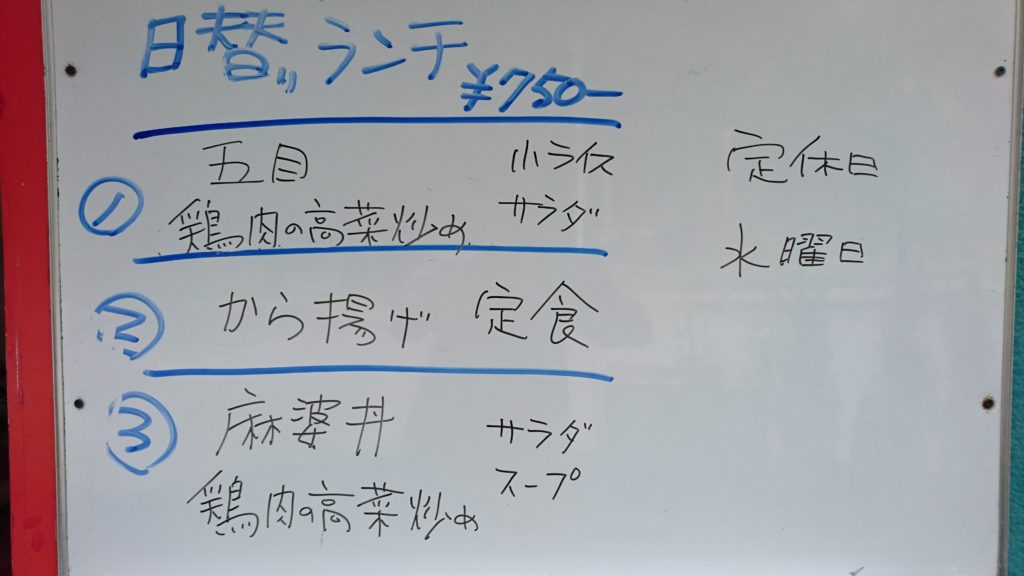 日替りランチ
¥750-
① 五目 小ライス
鶏肉の高菜炒め サラダ
② から揚げ 定食
③ 麻婆丼 サラダ
スープ
鶏肉の高菜炒め
定休日
水曜日